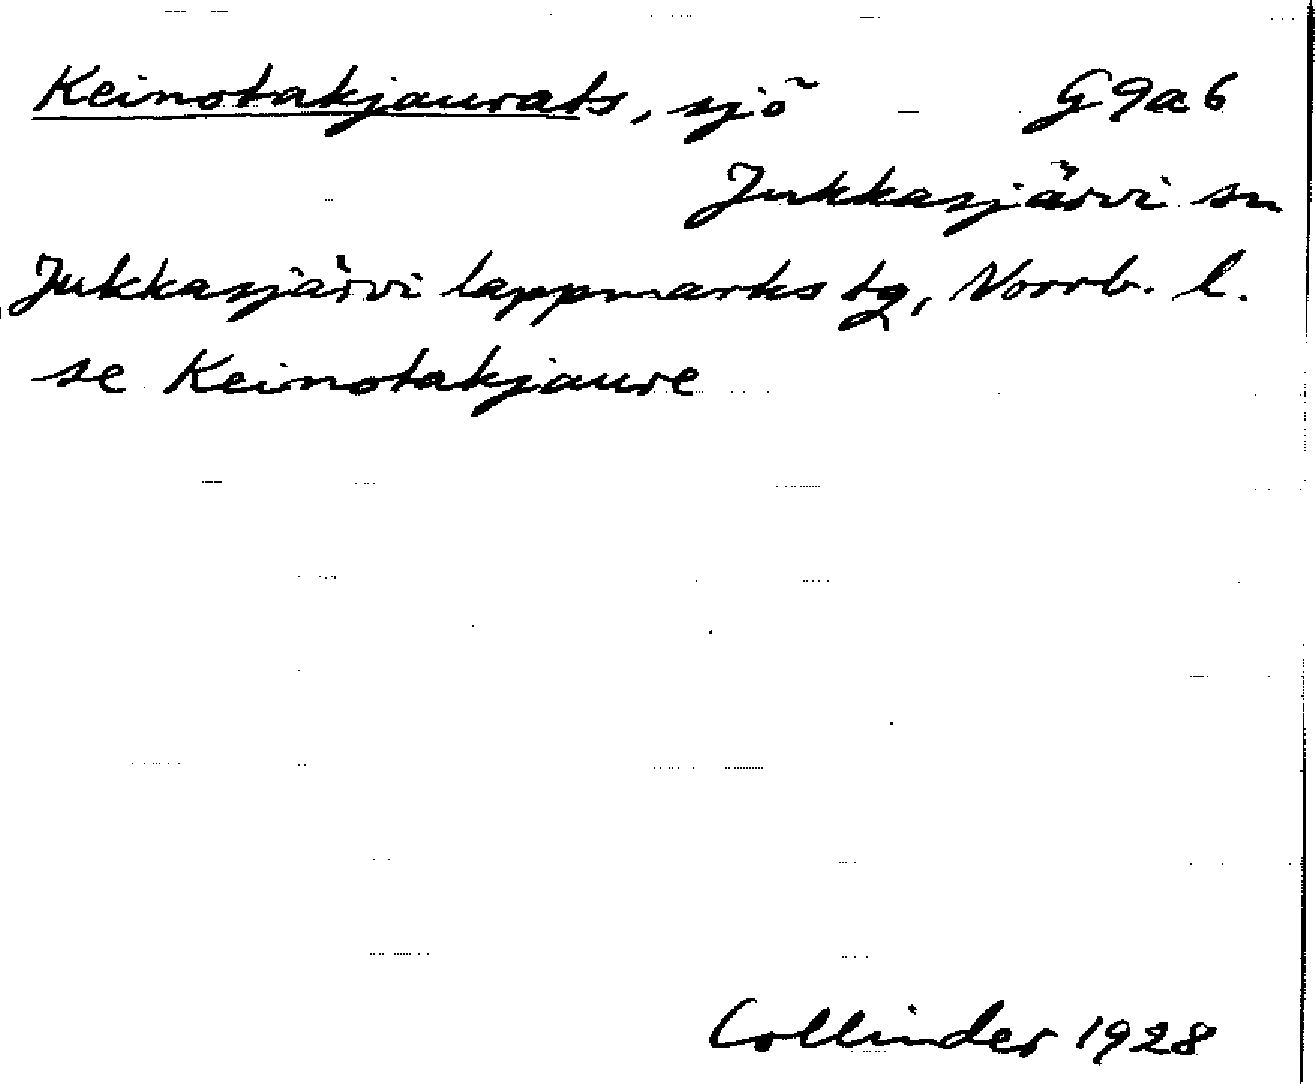 Keinotakjaurats, sjö G9a6
Jukkasjärvi sn
Jukkasjärvi lappmarks tg, Norrb. l.
se Keinotakjaure
Collinder 1928